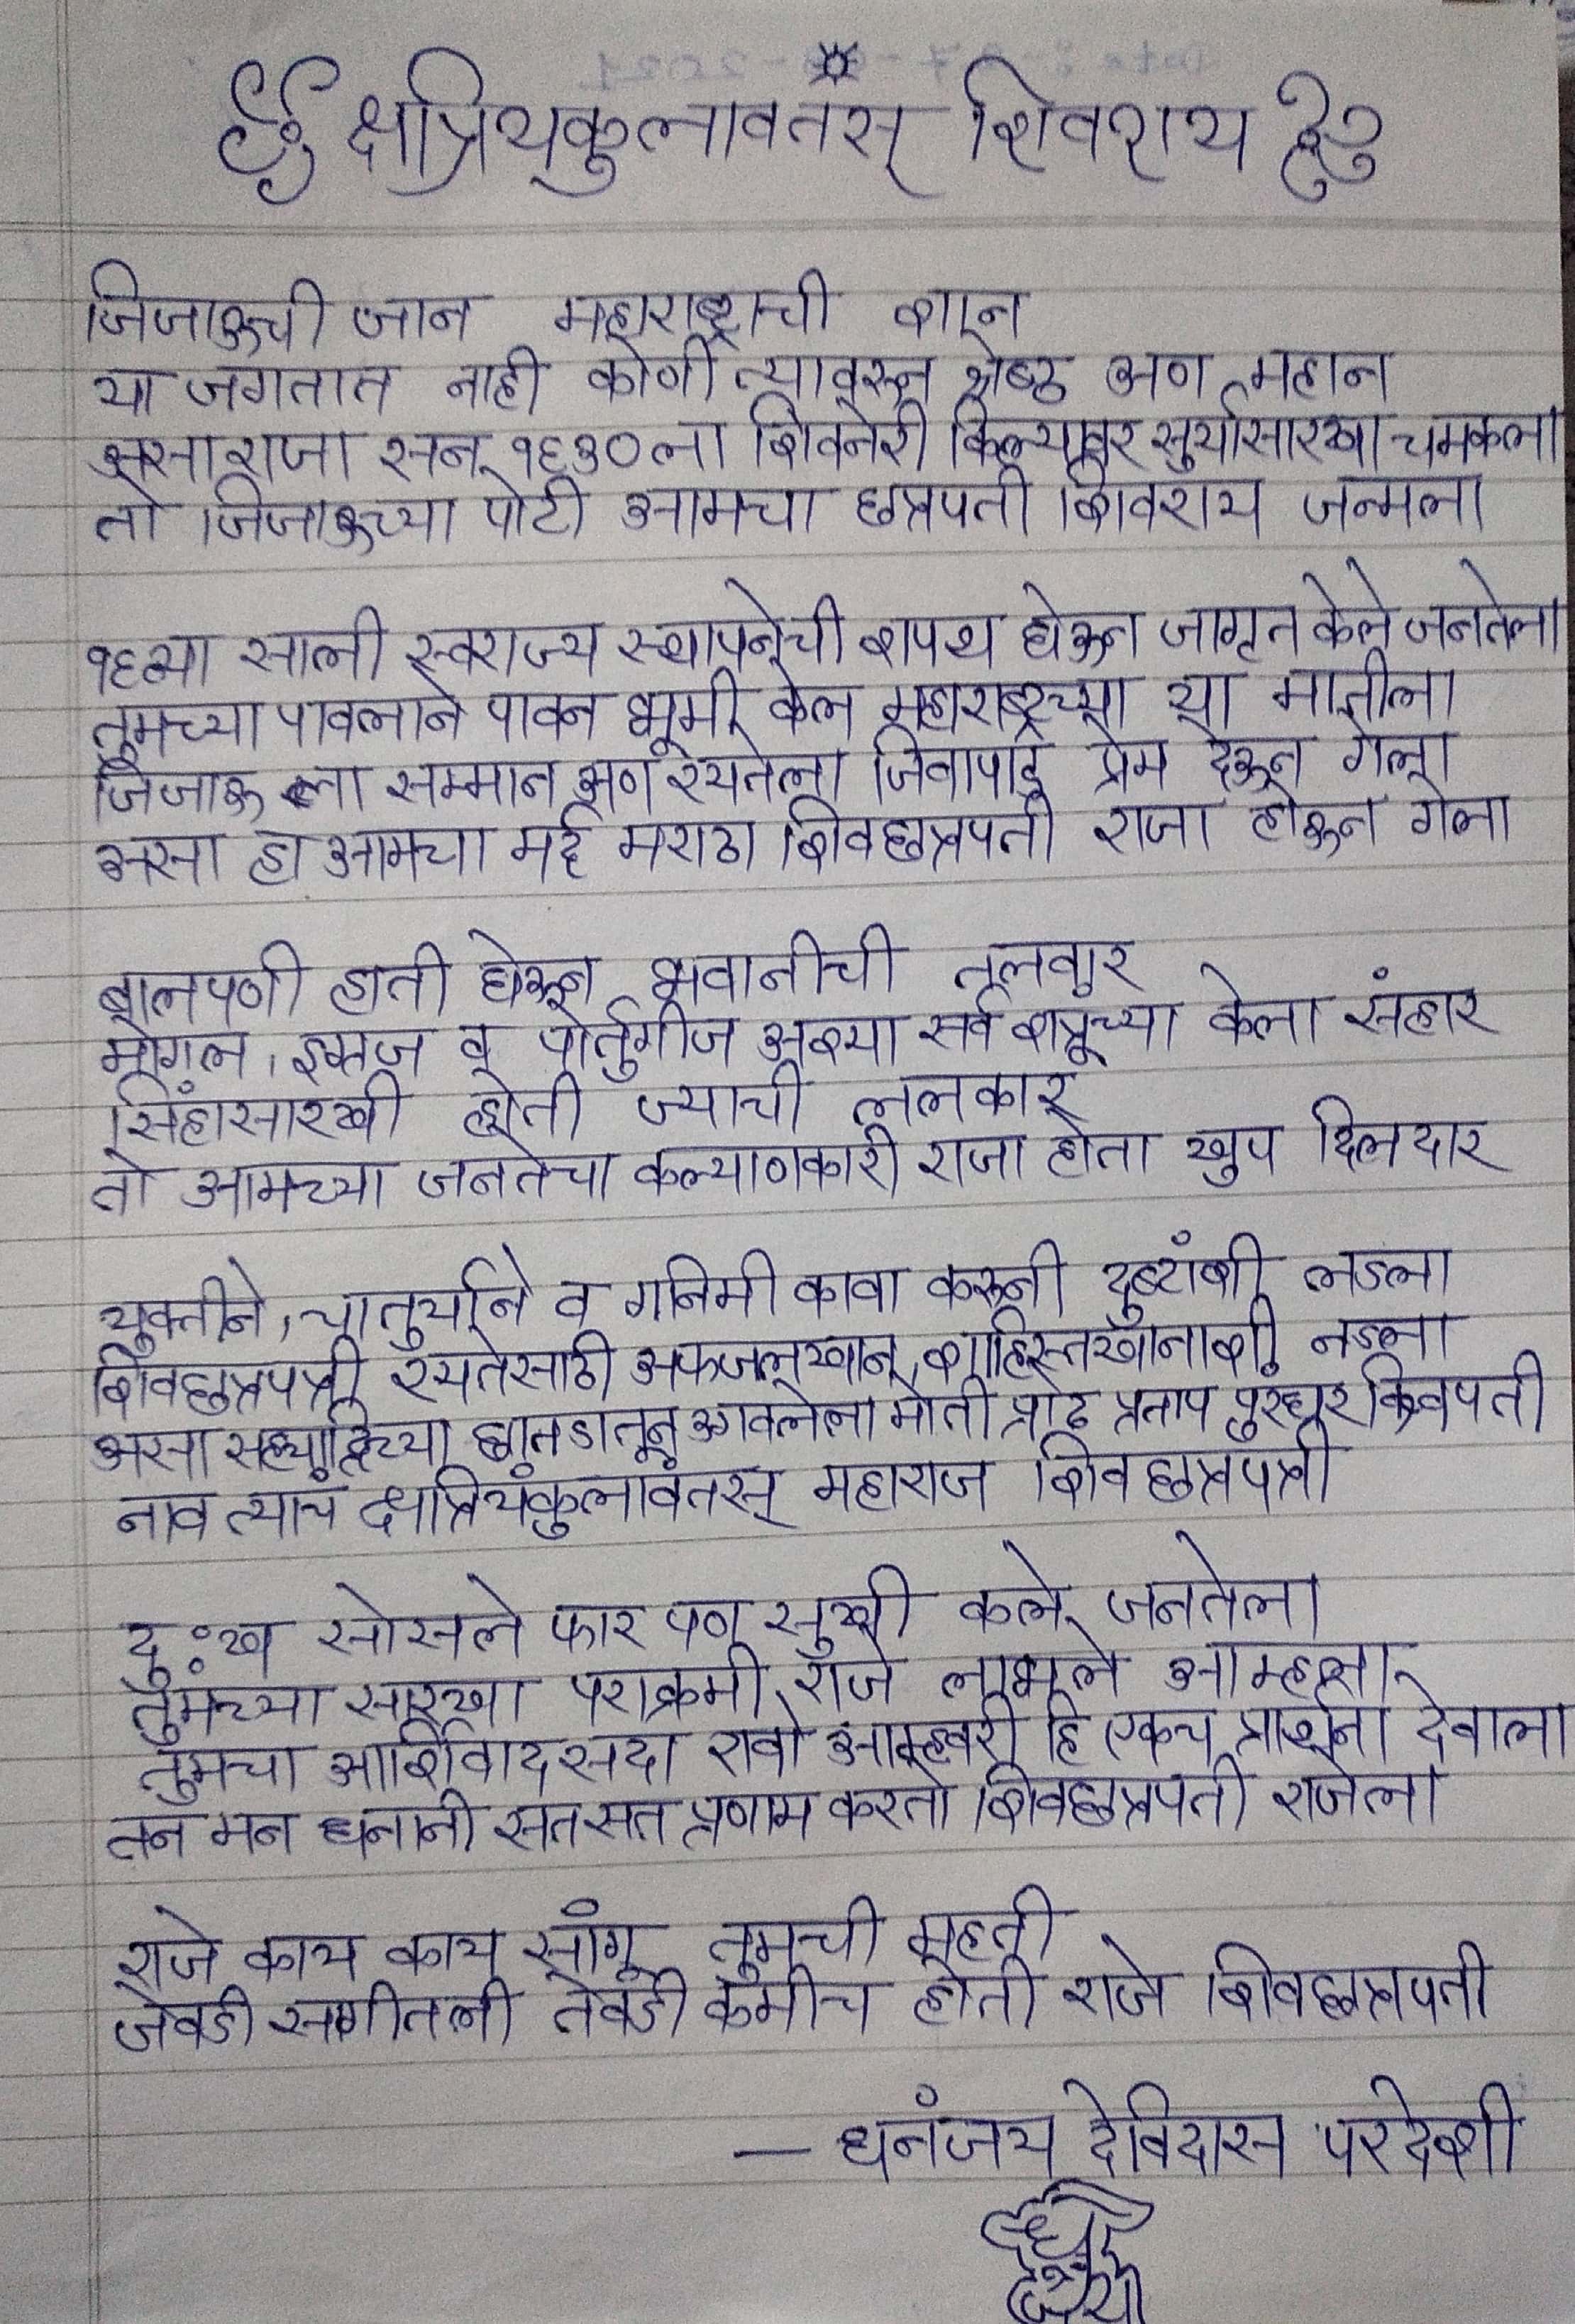 क्षत्रियकुलावतंस् शिवराय
जिजाऊची जान महाराष्ट्राची शान
या जगतात नाही कोणी त्यावरून श्रेष्ठ अण महान
असा राजा सन् १६३०ला शिवनेरी किल्यावर सुर्यासारखा चमकला
तो जिजाऊच्या पोटी आमचा छत्रपती शिवराय जन्मला
१६व्या साली स्वराज्य स्थापनेची शपथ घेऊन जागृत केले जनतेला
तुमच्या पावलाने पावन भूमी केल महाराष्ट्रच्या या मातीला
जिजाऊ ला सम्मान अण रयतेला जिवापाड प्रेम देऊन गेला
असा हा आमचा मर्द मराठा शिवछत्रपती राजा होऊन गेला
बालपणी हाती घेऊन भवानीची तलवार
मोगल, इंग्रज व पोर्तुगीज अश्या सर्व शत्रूच्या केला संहार
सिंहासारखी होती ज्याची ललकार
तो आमच्या जनतेचा कल्याणकारी राजा होता खुप दिलदार
युक्तीने, चातुर्याने व गनिमी कावा करूनी दुष्टांशी लढला
शिवछत्रपत्री रयतेसाठी अफजलखान, शाहिस्तखानाशी नडला
असा सह्याद्रिच्या मोती प्रौढ प्रताप पुरंधर
नाव त्याच क्षत्रियकुलावंतस् महाराज शिवछत्रपत्री
दुःख सोसले फार पण सुखी कले जनतेला
तुमच्या सारखा पराक्रमी राजे लाभले आम्हाला
तुमचा आर्शिवाद सदा रावो आम्हवरी हि एकच प्रार्थना देवाला
तन मन धनानी सत सत प्रणाम करतो शिवछत्रपती राजेला
राजे काय काय सांगू तुमची महती
जेवडी सागीतली तेवडी कमीच होती राजे शिवछत्रपती
— धनंजय देविदास परदेशी